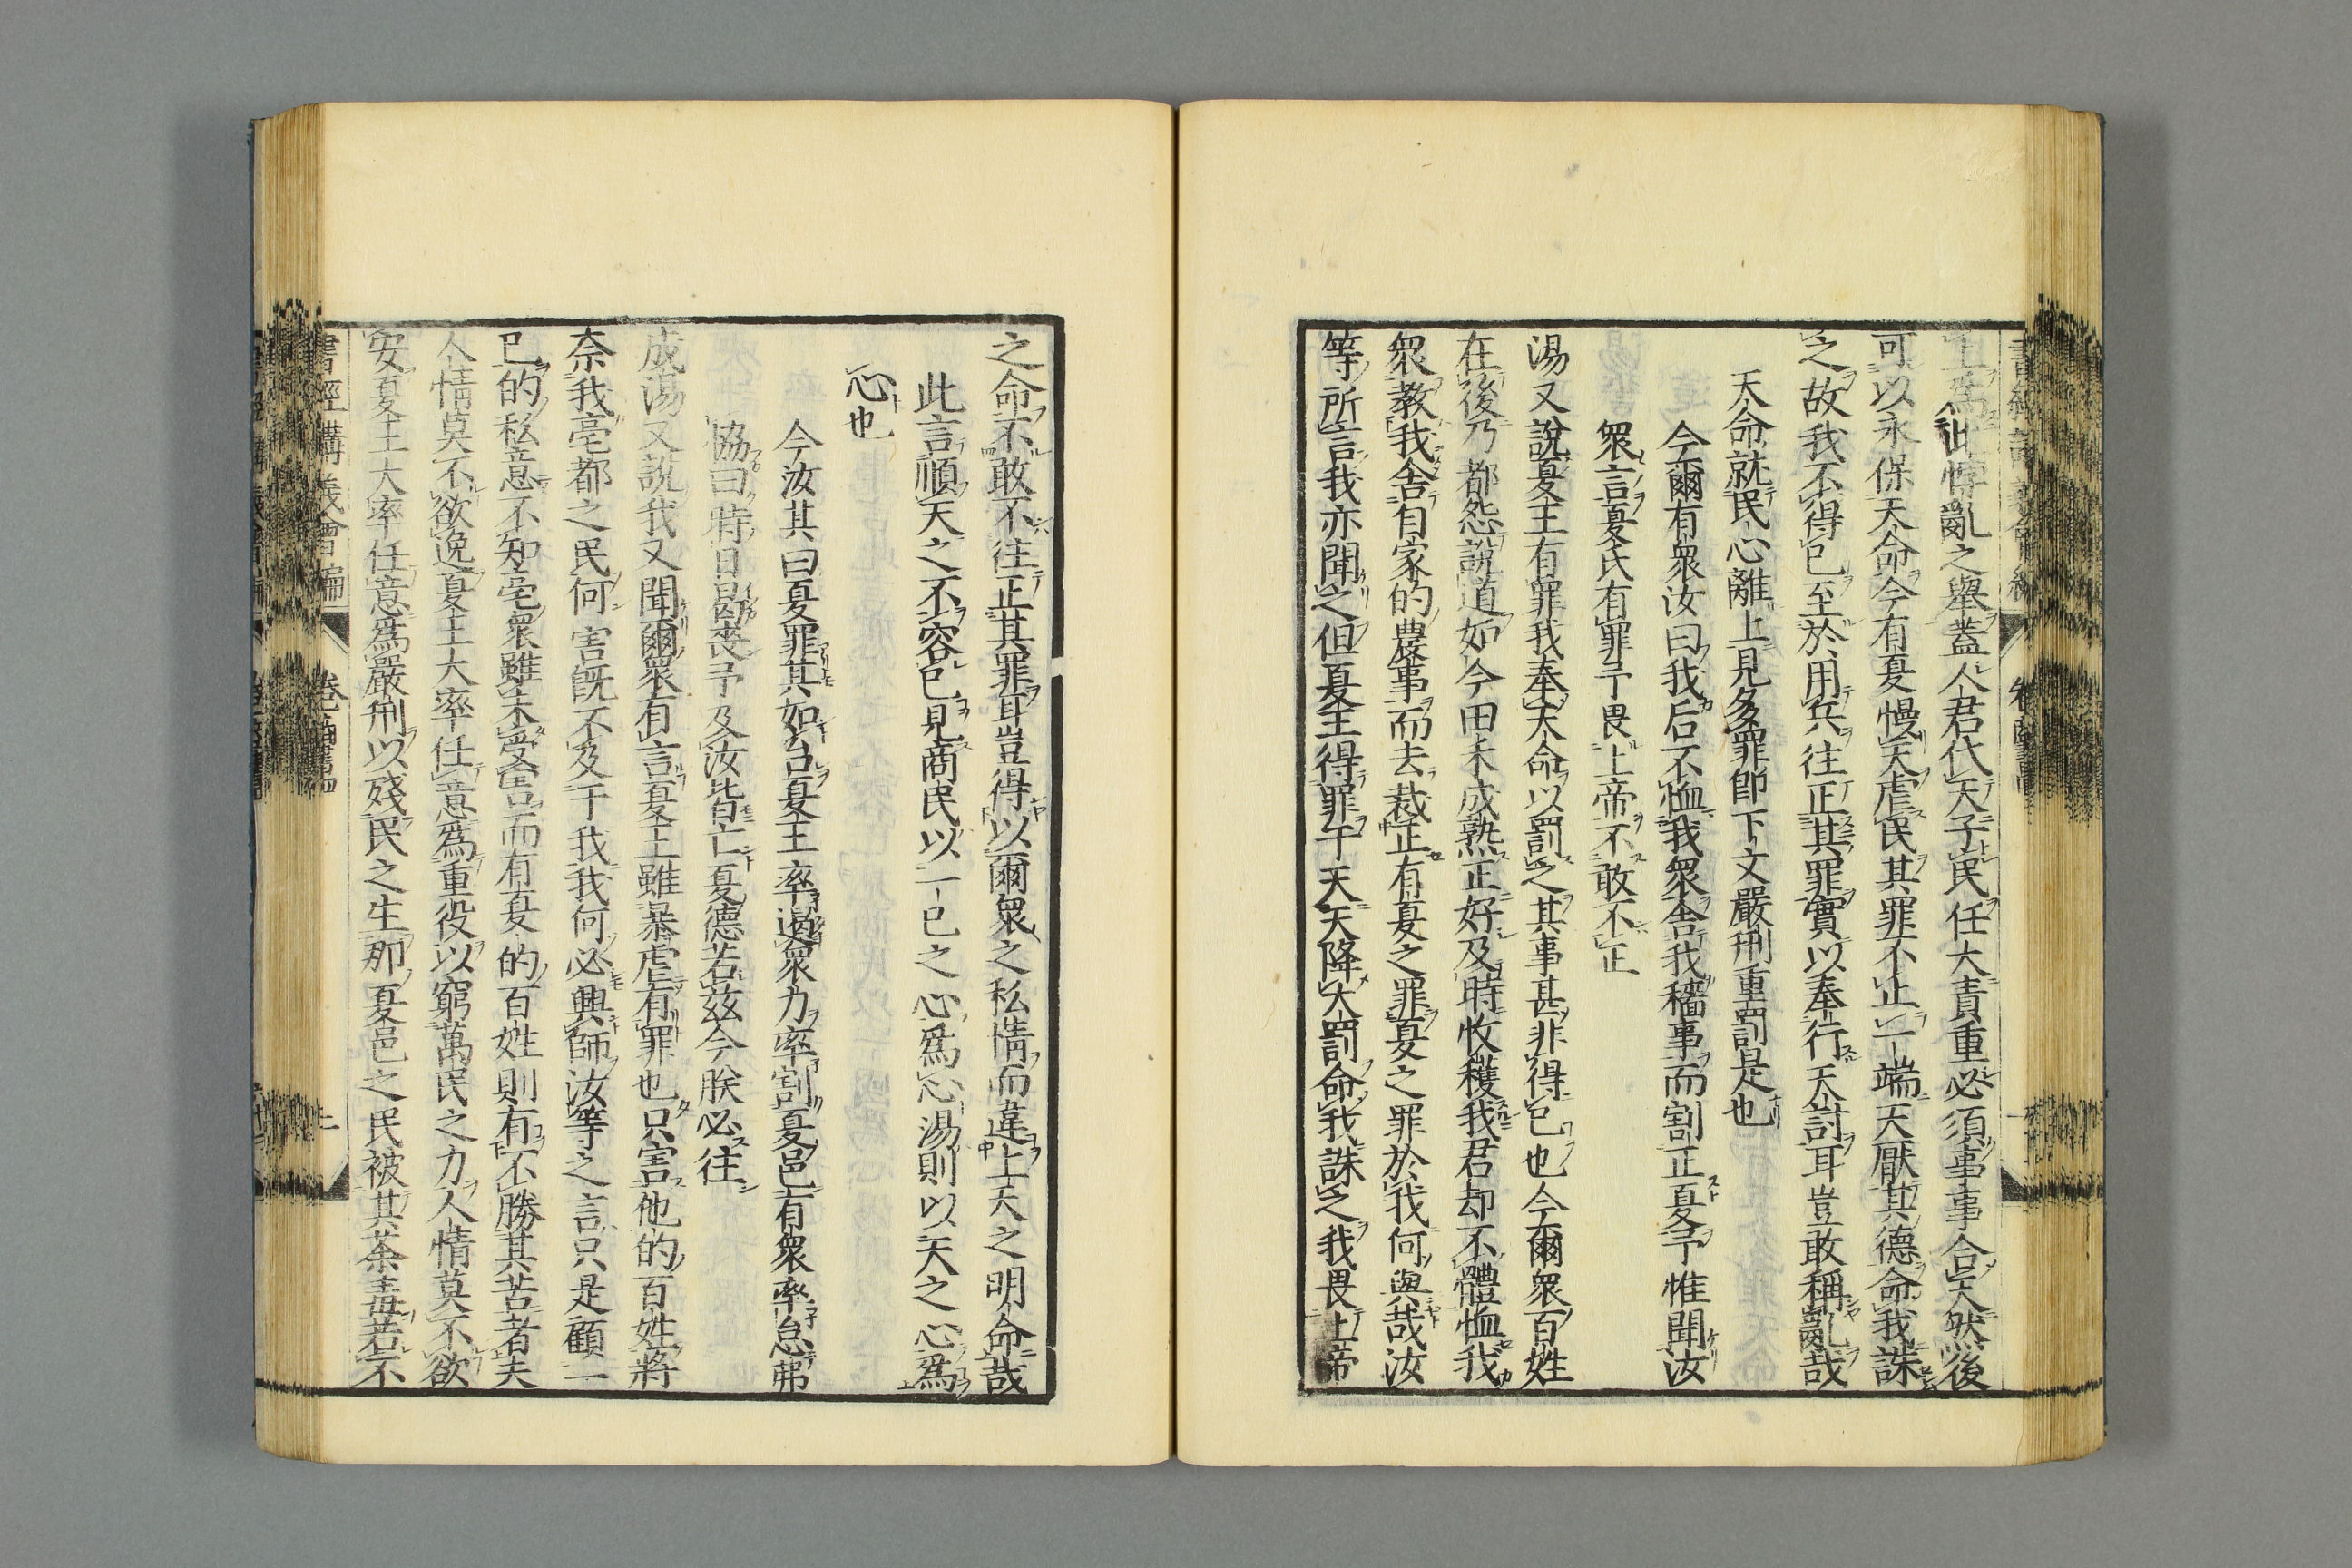 上爲此悖亂之舉蓋人君代天子民任大責重必須事事合天然後
可以永保天命今有夏慢天虐民其罪不止一端天厭其德命我誅
之故我不得已至於用兵往正其罪實以奉行天討耳豈敢稱亂哉
天命就民心離上見多罪卽下文嚴刑重罰是也
今爾有衆汝曰我后不恤我衆舍我穡事而割正夏予惟聞汝
衆言夏氏有罪予畏上帝不敢不正
湯又說夏王有罪我奉天命以罰之其事甚非得已也今爾衆百姓
在後乃都怨說道如今田禾成熟正好及時收穫我君却不體恤我
衆教我舍自家的農事而去裁正有夏之罪夏之罪於我何與哉汝
等所言我亦聞之但夏王得罪于天天降大罰命我誅之我畏上帝
之命不敢不往正其罪耳豈得以爾衆之私情而違上天之明命哉
此言順天之不容已見商民以一己之心爲心湯則以天之心爲
心也
今汝其曰夏罪其如台夏王率遏衆力率割夏邑有衆率怠弗
協曰時日曷喪予及汝皆亡夏德若茲今朕必往
成湯又說我又聞爾衆有言夏王雖暴虐有罪也只害他的百姓將
奈我亳都之民何害旣不及于我我何必興師汝等之言只是顧一
己的私意不知亳衆雖未受害而有夏的百姓則有不勝其苦者夫
人情莫不欲逸夏王大率任意爲重役以窮萬民之力人情莫不欲
安夏王大率任意爲嚴刑以殘民之生那夏邑之民被其荼毒若不
書經講義會編